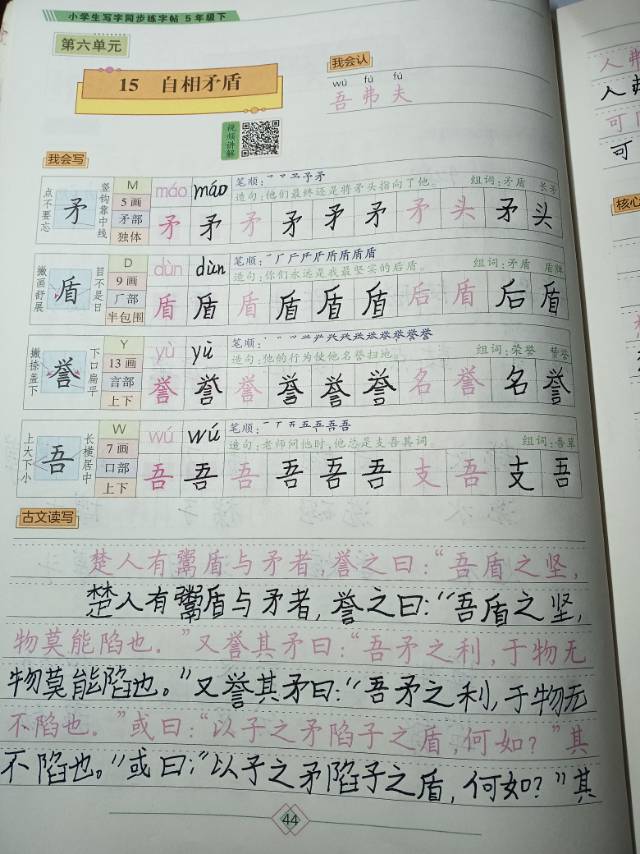 小学生写字同步练字帖 5年级下
第六单元
15 自相矛盾
我会认
wú fú fū
吾 弗 夫
视频讲解
我会写
点不要忘
矛
竖钩靠中线
M
5 画
矛部
独体
máo máo
笔顺:
造句:他们最终还是将矛头指向了他。 组词:矛盾 长矛
矛 矛 矛 矛 矛 矛 矛 头 矛 头
撇画舒展
盾
目不是日
D
9 画
厂部
半包围
dùn dùn
笔顺:
造句:你们永远是我最坚实的后盾。 组词:矛盾 盾牌
盾 盾 盾 盾 盾 盾 后 盾 后 盾
撇捺盖下
誉
下口扁平
Y
13 画
言部
上下
yù yù
笔顺:
造句:他的行为使他名誉扫地。 组词:荣誉 赞誉
誉 誉 誉 誉 誉 誉 名 誉 名 誉
上大下小
吾
长横居中
W
7 画
口部
上下
wú wú
笔顺:
造句:老师问他时,他总是支吾其词 组词:吾辈
吾 吾 吾 吾 吾 吾 支 吾 支 吾
古文读写
楚人有鬻盾与矛者,誉之曰:“吾盾之坚,
楚人有鬻盾与矛者,誉之曰:“吾盾之坚,
物莫能陷也。”又誉其矛曰:“吾矛之利,于物无
物莫能陷也。”又誉其矛曰:“吾矛之利,于物无
不陷也。”或曰:“以子之矛陷子之盾,何如?”其
不陷也。”或曰:“以子之矛陷子之盾,何如?”其
44
人弗
人弗
可
可
核心